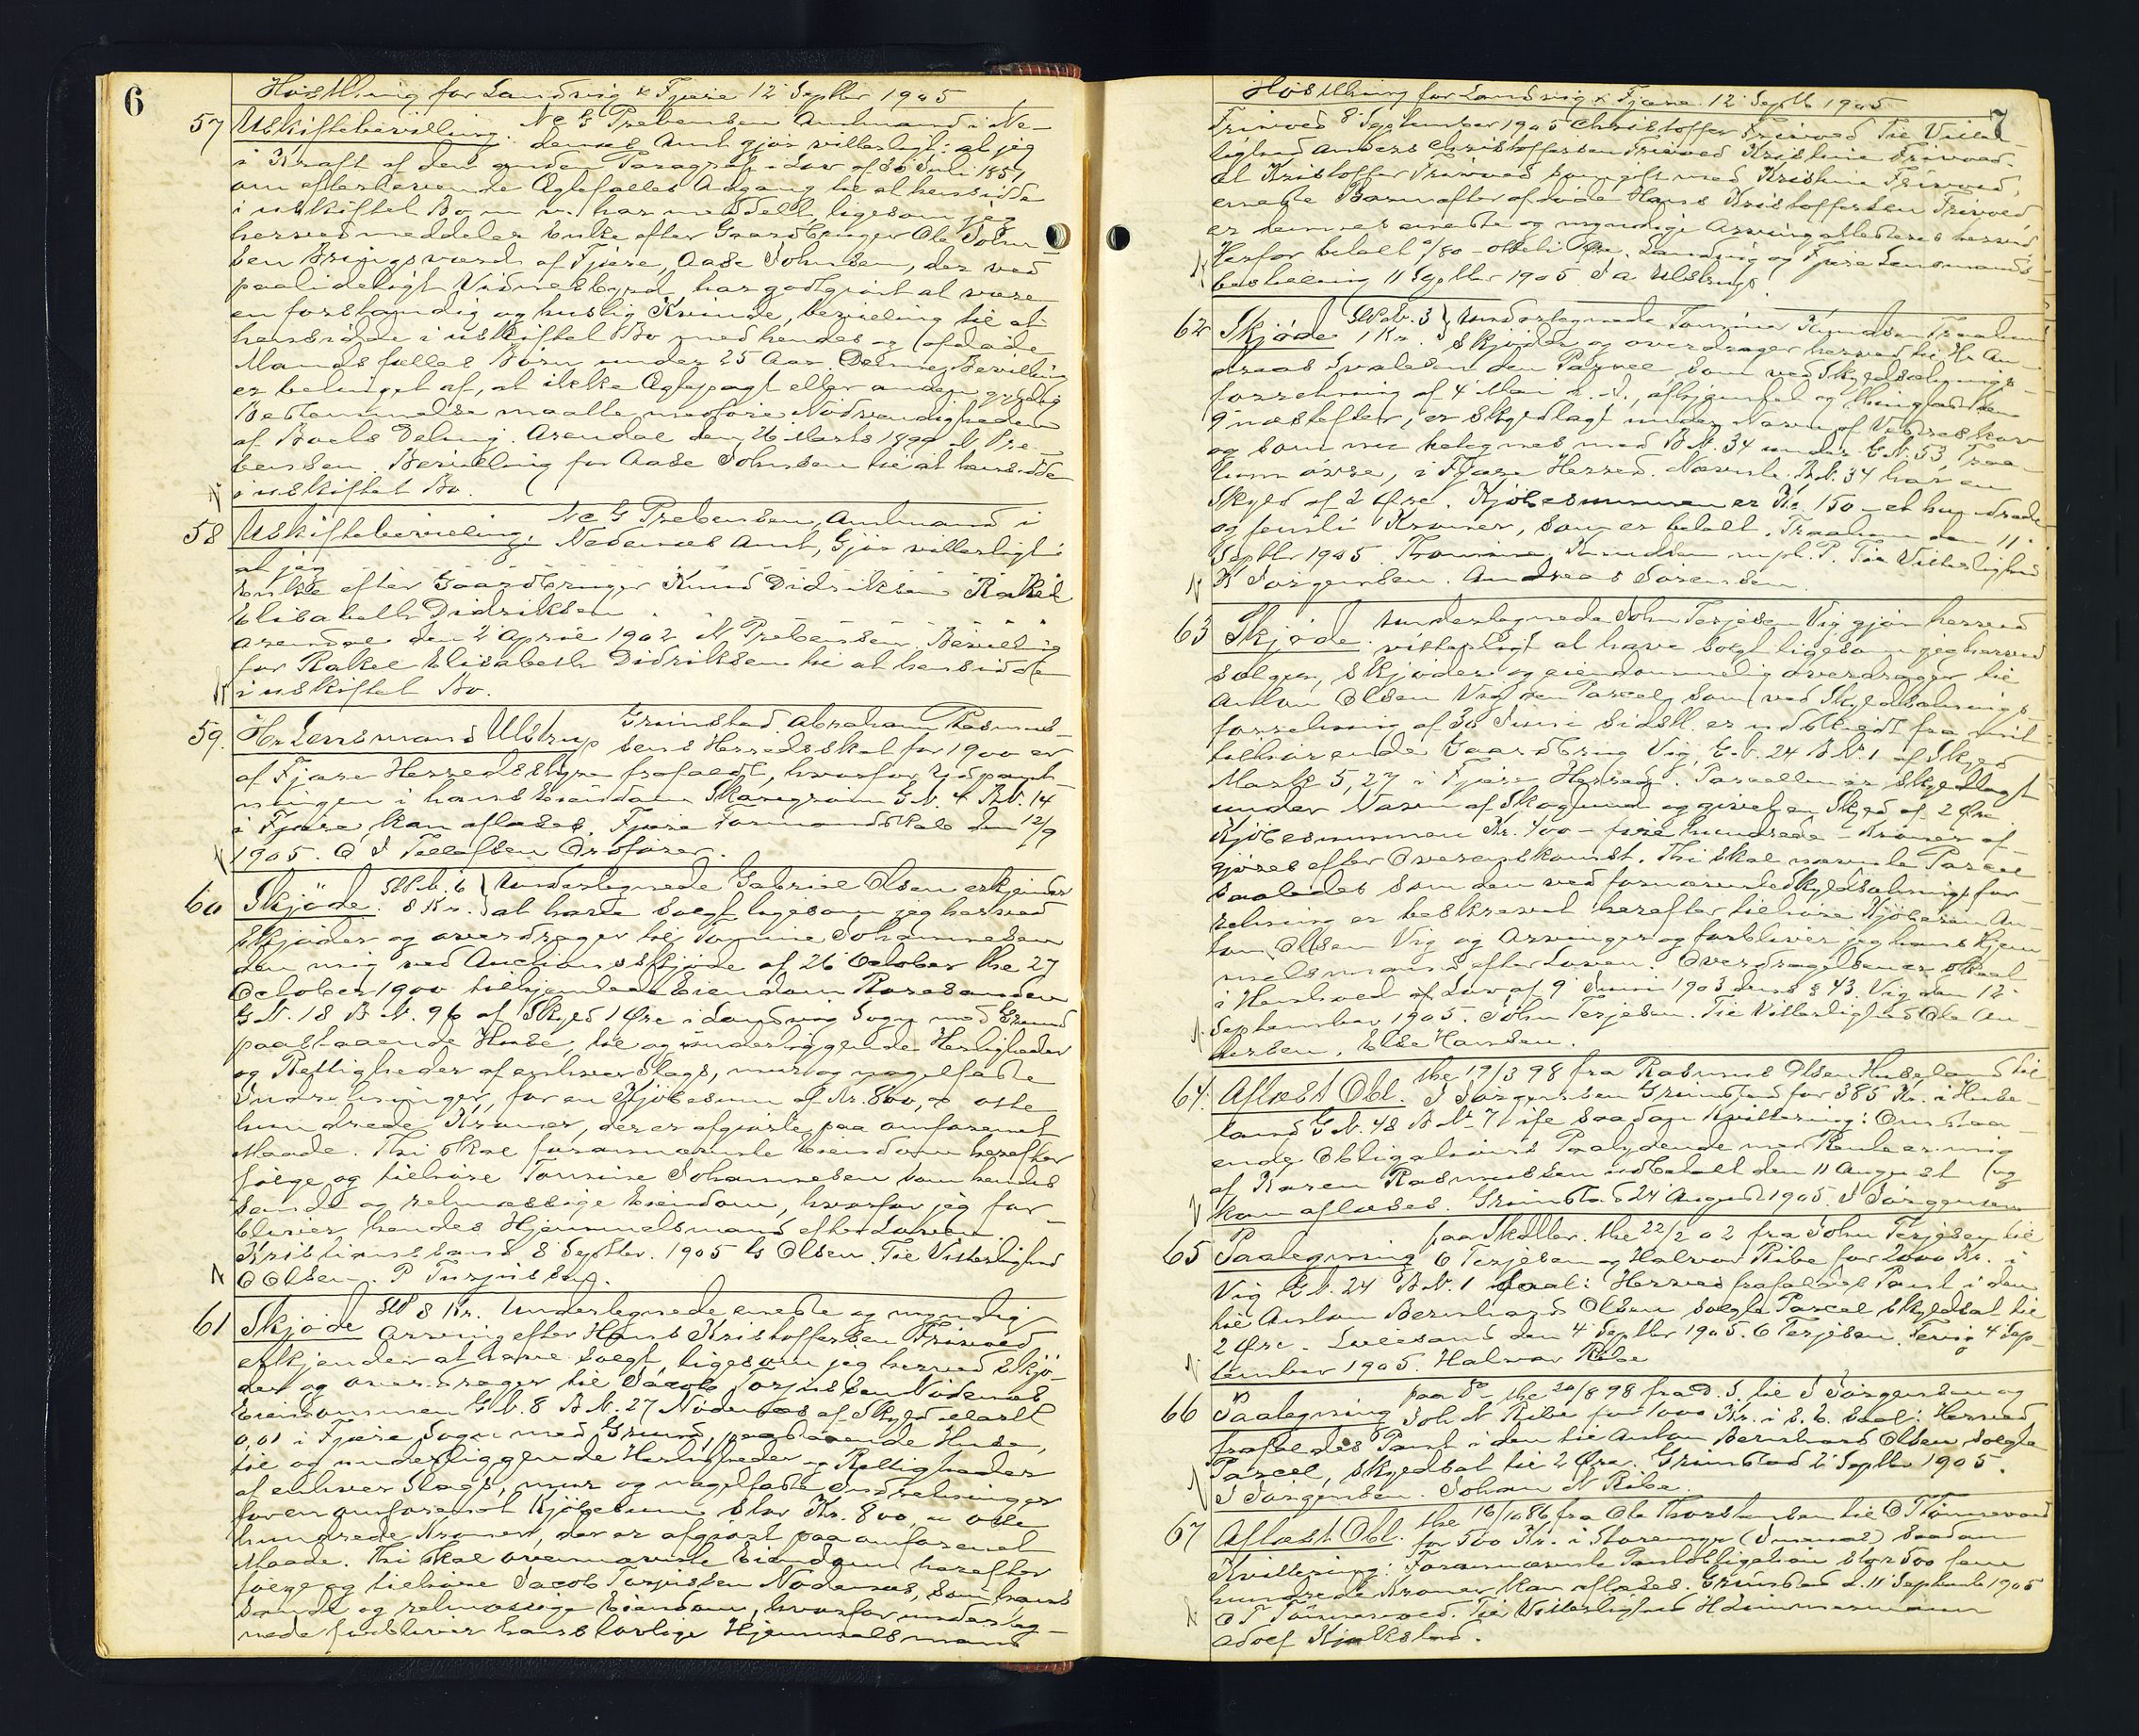 6
Høstthing for Landvig & Fjære 12 Septbr 1905
57 Uskiftebevilling. N C G Prebensen Amtmand i Ne-
denæs Amt gjør vitterligt: at jeg
i Kraft af den anden Paragraf i Lov af 30 Juli 1851
om efterlevende Ægtefælles Adgang til at hensidde
i uskiftet Bo m. v. har meddelt, ligesom jeg
herved meddeler Enke efter Gaardbruger Ole John-
sen Bringsværd af Fjære, Aase Johnsen, der ved
paalideligt Vidnesbyrd har godtgjort at være
en forstandig og huslig Kvinde, bevilling til at
hensidde i uskiftet Bo med hendes og afdøde
Mands fælles Børn under 25 Aar. Denne Bevilling
er betinget af, at ikke Ægtepagt eller anden gyldig
Bestemmelse maatte medføre Nødvendigheden
af Boets Deling. Arendal den 26 Marts 1899 N Pre-
bensen. Bevilling for Aase Johnsen til at hensidde
i uskiftet Bo.
58 Uskiftebevilling. N C G Prebensen, Amtmand i
Nedenæs Amt, Gjør vitterligt:
at jeg
Enke efter Gaardbruger Knud Didriksen Rakel
Elisabeth Didriksen
Arendal den 2 April 1902 N Prebensen Bevilling
for Rakel Elisabeth Didriksen til at hensidde
i uskiftet Bo.
59. Hr Lensmand Ulstrup Grimstad. Abraham Rasmus-
sens Herredsskat for 1900 er
af Fjære Herredsstyre frafaldt, hvorfor Udpant-
ningen i hans Eiendom Skaregrøm G.N. 4 B.N. 14
i Fjære kan aflæses. Fjære Formandskab den 12/9
1905. O J Tellefsen Ordfører.
60 Skjøde. StPb. 6 8 Kr. Undertegnede Gabriel Olsen erkjender
at have solgt ligesom jeg herved
skjøder og overdrager til Tomine Johannesen
den mig ved Auctionsskjøde af 26 October thl 27
October 1900 tilhjemlede Eiendom Roresanden
G.N. 18 B.N. 96 af Skyld 1 Øre i Landvig Sogn med Grund
paastaaende Huse, til og underliggende Herligheder
og Rettigheder af enhver Slags, mur og nagelfaste
Indretninger, for en Kjøbesum af Kr. 800, er otte
hundrede Kroner, der er afgjorte paa omforenet
Maade. Thi skal forannævnte Eiendom herefter
følge og tilhøre Tomine Johannesen som hendes
sande og retmæssige Eiendom, hvorfor jeg for-
bliver hendes Hjemmelsmand efter Loven
Kristianssand 8 Septbr. 1905 G Olsen. Til Vitterlighed
O Olsen. P Terjussen.
61 Skjøde StP 8 Kr. Undertegnede eneste og myndig
Arving efter Hans Kristoffersen Frivold
erkjender at have solgt, ligesom jeg herved skjø-
der og overdrager til Jacob Torjussen Nødenæs
Eiendommen G.N. 8 B.N. 27 Nødenæs af Skyld Mark
0,01 i Fjære Sogn med Grund, paastaaende Huse,
til og underliggende Herligheder og Rettigheder
af enhver Slags, mur og nagelfaste Indretninger
for en omforenet Kjøbesum stor Kr. 800, er otte
hundrede Kroner, der er afgjort paa omforenet
Maade. Thi skal ovennævnte Eiendom herefter
følge og tilhøre Jacob Torjussen Nødenæs, som hans
sande og retmæssige Eiendom, hvorfor underteg-
nede forbliver hans lovlige Hjemmelsmand
7
Høstthing for Landvig & Fjære 12 Septb 1905
Frivold 8 September 1905 Christoffer Frivold Til Vitter-
lighed Anders Christoffersen Frivold Kristine Frivold.
At Kristoffer Frivold paagift med Kristine Frivold,
eneste Barn efter afdøde Hans Kristoffersen Frivold
er dennes eneste og myndige Arving attesteres herved
Herfor betalt 0/80 - otteti Øre. Landvig og Fjære Lensmands-
bestilling 11 Septbr 1905 J A Ulstrup.
62 Skjøde StPb. 3 1 Kr. Undertegnede Tomine Knudsen Traalum
skjøder og overdrager herved til Hr An-
dreas Evalsen den Parcel som ved Skyldsætnings-
forretning af 4 Mai d. A., afhjemlet og thinglæst den
9 næstefter, er skyldlagt under Navn af Vestreskar
og som nu betegnes med B.N. 34 under G.N. 53, Traa-
lum øvre, i Fjære Herred. Nævnte B.N. 34 har en
Skyld af 2 Øre. Kjøbesummen er Kr. 150 - et hundrede
og femti Kroner, som er betalt. Traalum den 11
Septbr 1905. Thomine Knudsen m. p. P. Til Vitterlighed
K Jørgensen. Andreas Sørensen
63 Skjøde. Undertegnede John Terjesen Vig gjør herved
vitterligt at have solgt ligesom jeg herved
sælger, skjøder og eiendommelig overdrager til
Anton Olsen Vig den Parcel, som ved Skyldsætnings-
forretning af 30 Juni sidstl. er udskilt fra mit
tilhørende Gaardbrug Vig, G.N. 24 B.N. 1 af Skyld
Mark 5,27 i Fjære Herred. Parcellen er skyldlagt
under Navn af Skoglund og givet en Skyld af 2 Øre
Kjøbesummen Kr. 400 - fire hundrede - Kroner af-
gjøres efter Overenskomst. Thi skal nævnte Parcel
saaledes som den ved fornævnte Skyldsætningsfor-
retning er beskrevet herefter tilhøre Kjøberen An-
ton Olsen Vig og Arvinger og forbliver jeg hans Hjem-
melsmand efter Loven. Overdragelsen er skeet
i Henhold til Lov af 9 Juni 1903 dens § 43. Vig den 12
September 1905. John Terjesen. Til Vitterlighed Ole An-
dersen, Else Hansen.
64. Aflæst Obl. thl 17/3 98 fra Rasmus Olsen Huseland til
J Jørgensen Grimstad for 385 Kr. i Huse-
land G.N. 48 B.N. 7 ifr saadan Kvittering: Omstaa-
ende Obligations Paalydende med Renter er mig
af Karen Rasmussen indbetalt den 11 August (og
kan aflæses. Grimstad 24 August 1905 J Jørgensen
65 Paategning paa Sk.obl. thl 22/2 02 fra John Terjesen til
O Terjesen og Halvor Ribe for 2000 Kr. i
Vig G.N. 24 B.N. 1 saal: Herved frafaldes Pant i den
til Anton Bernhard Olsen solgte Parcel skyldsat til
2 Øre. Lillesand den 4 Septbr 1905. O Terjesen. Fevig 4 Sep-
tember 1905. Halvor Ribe
66 Paategning paa Do thl 20/8 98 fra D. S. til J Jørgensen og
Joh N Ribe for 1000 Kr. i S. E. saal: Herved
frafaldes Pant i den til Anton Bernhard Olsen solgte
Parcel, skyldsat til 2 Øre. Grimstad 2 Septbr 1905.
J Jørgensen. Johan N Ribe.
67 Aflæst Obl. thl 16/10 86 fra Ole Thorstensen til O Tønnesvold
for 500 Kr. i Storemyr saadan
Kvittering: Forannævnte Pantobligation stor 500 fem
hundrede Kroner kan aflæses. Grimstad d. 11 Septemb 1905
O T Tønnesvold. Til Vitterlighed H Zimmermann
Adolf Kjelkstad.